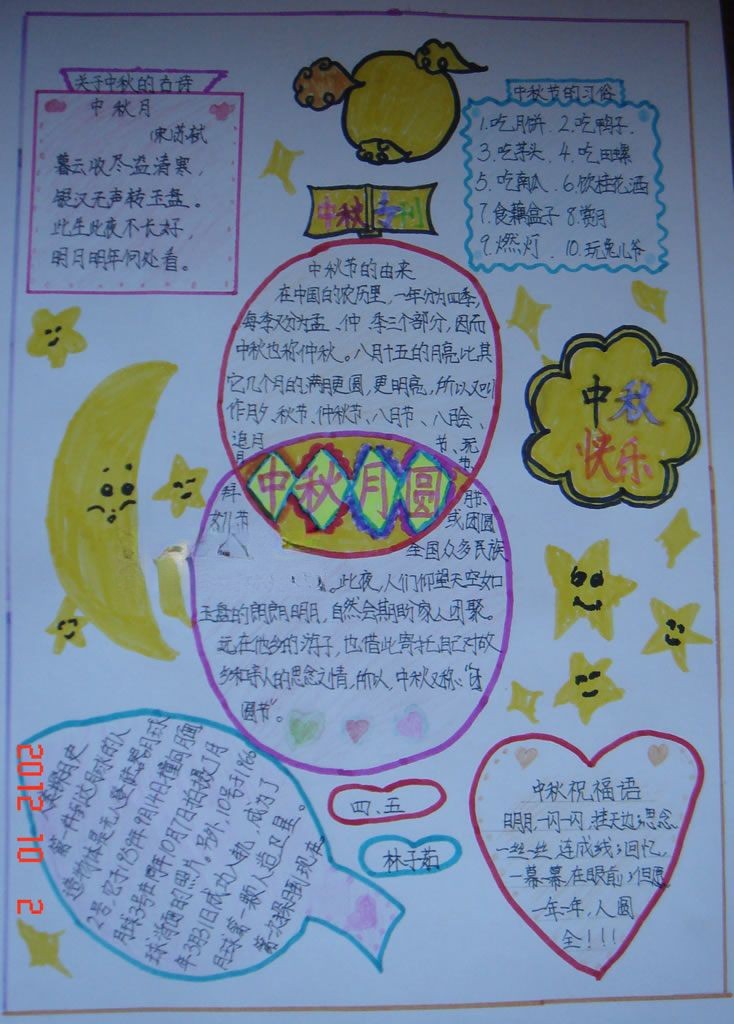 关于中秋的古诗
中秋月
宋苏轼
暮云收尽溢清寒，
银汉无声转玉盘。
此生此夜不长好，
明月明年何处看。
中秋专刊
中秋节的习俗
1.吃月饼 2.吃鸭子.
3.吃芋头 4.吃田螺
5.吃南瓜 6.饮桂花酒
7.食藕盒子 8.赏月
9.燃灯. 10.玩兔儿爷
中秋节的由来
在中国的农历里，一年分为四季，
每季又分为孟、仲、季三个部分，因而
中秋也称仲秋。八月十五的月亮比其
它几个月的满月更圆，更明亮，所以又叫
作月夕、秋节、仲秋节、八月节、八月会、
追月节、玩
月节、拜月节、
女儿节或团圆
全国众多民族
中秋月圆
。此夜，人们仰望天空如
玉盘的朗朗明月，自然会期盼家人团聚。
远在他乡的游子，也借此寄托自己对故
乡和亲人的思念之情，所以，中秋又称“团
圆节”。
中秋
快乐
四、五
林子茹
人类探月史
第一件到达月球的人
造物体是无人登陆器月球
2号，它于1959年9月14日撞向月面
月球3号在同年10月7日拍摄了月
球背面的照片。另外，10号于1966
年3月31日成功入轨，成为了
月球第一颗人造卫星。
中秋祝福语
明月，一闪一闪，挂天边；思念
一丝一丝，连成线；回忆，
一幕一幕，在眼前；但愿
一年一年，人圆
全！！！
2012 10 2